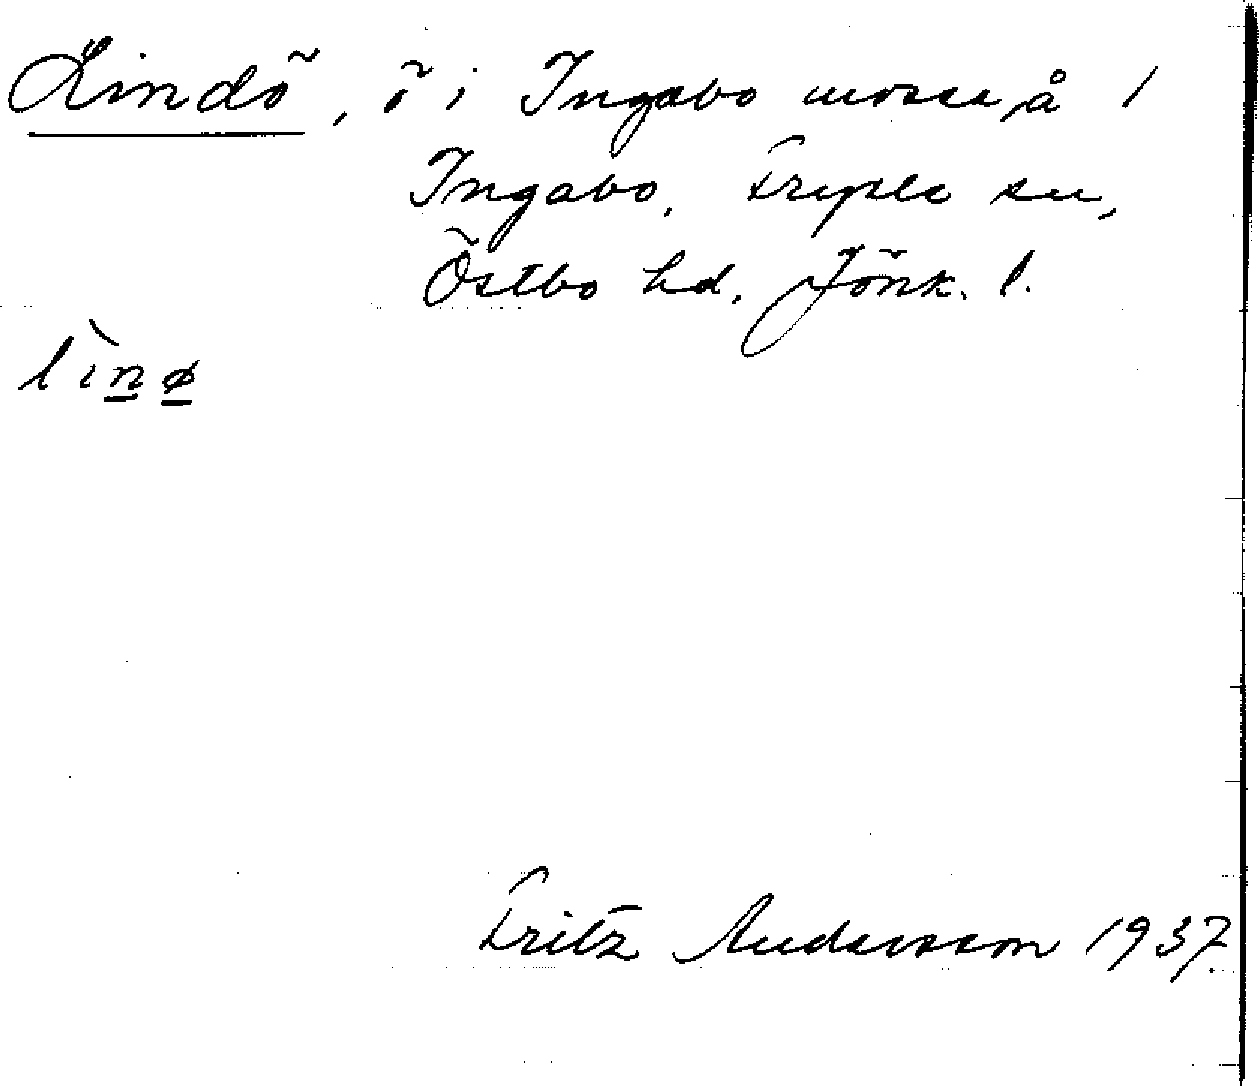 Lindö, ö i Ingabo mosse, å 1
Ingabo, Fryele sn,
Östbo hd. Jönk. l.
lìnø
Fritz Andersson 1937.